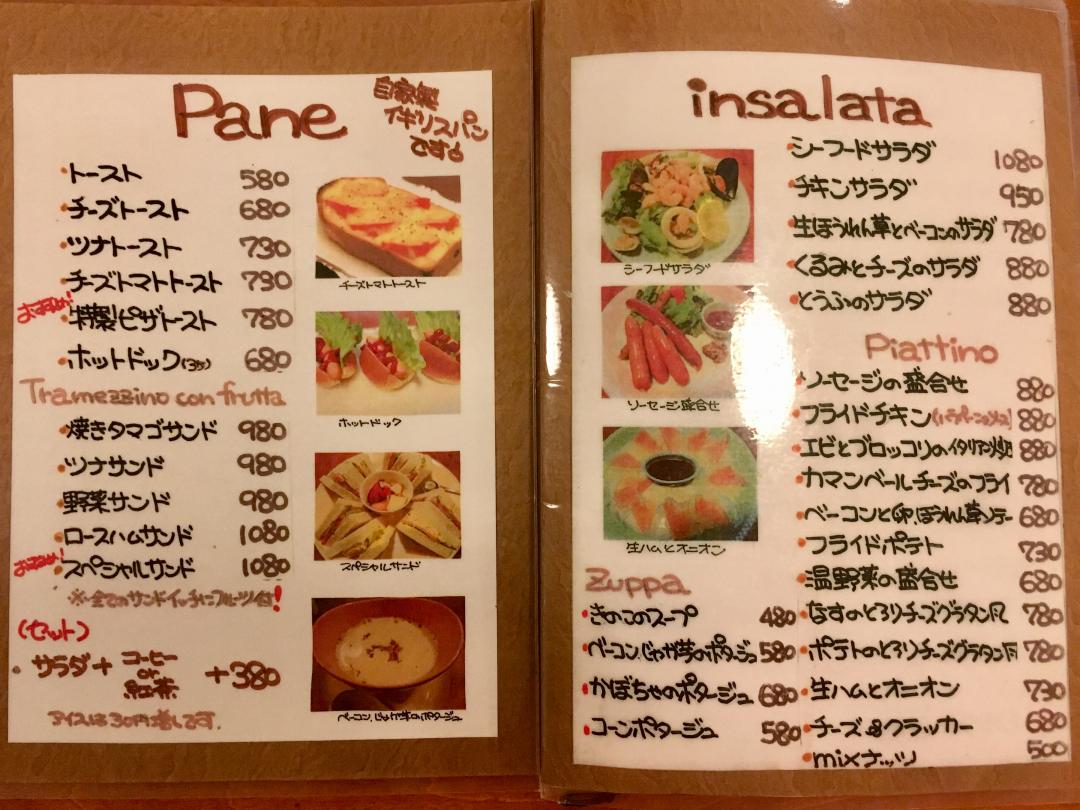 Pane
自家製
イギリスパン
です。
・トースト 580
・チーズトースト 680
・ツナトースト 730
・チーズトマトトースト 730
おすすめ!
・特製ピザトースト 780
・ホットドック(3ヶ) 680
Tramezzino con frutta
・焼きタマゴサンド 980
・ツナサンド 980
・野菜サンド 980
・ロースハムサンド 1080
おすすめ!
・スペシャルサンド 1080
※全てのサンドイッチにフルーツ付!
(セット)
・サラダ + コーヒー
or
紅茶
+380
アイスは30円増しです。
チーズトマトトースト
ホットドック
スペシャルサンド
ベーコン、じゃが芋のポタージュ
insalata
・シーフードサラダ 1080
・チキンサラダ 950
・生ほうれん草とベーコンのサラダ 780
・くるみとチーズのサラダ 880
・とうふのサラダ 880
シーフードサラダ
ソーセージ盛合せ
生ハムとオニオン
Piattino
・ソーセージの盛合せ 880
・フライドチキン 880
・エビとブロッコリのイタリアン炒め 880
・カマンベールチーズのフライ 780
・ベーコンと卵、ほうれん草ソテー 680
・フライドポテト 730
・温野菜の盛合せ 680
・なすのとろりチーズグラタン風 780
・ポテトのとろりチーズグラタン風 780
・生ハムとオニオン 730
・チーズ&クラッカー 680
・mixナッツ 500
Zuppa
・きのこのスープ 480
・ベーコン、じゃが芋のポタージュ 580
・かぼちゃのポタージュ 680
・コーンポタージュ 580